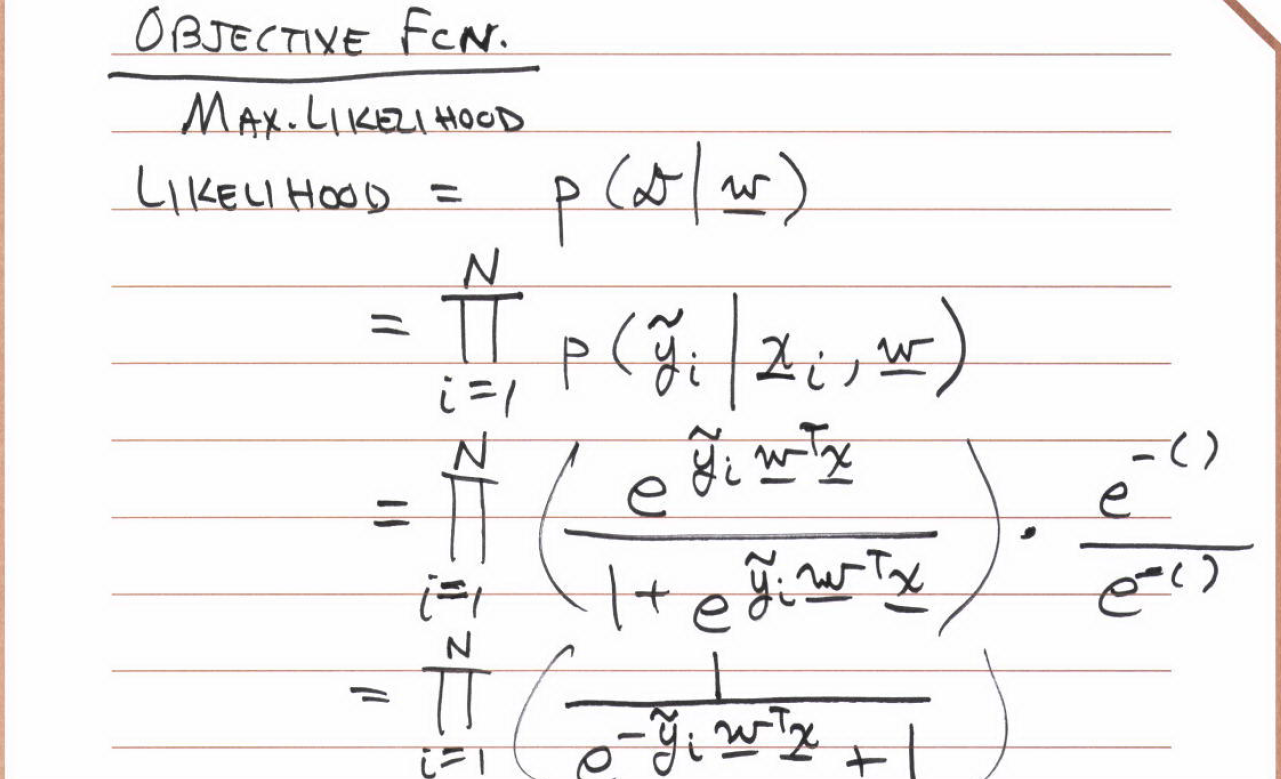 OBJECTIVE FCN.
MAX. LIKELIHOOD
LIKELIHOOD = p(𝒟|w̲)
= ∏_{i=1}^{N} p(ỹ_i | x̲_i, w̲)
= ∏_{i=1}^{N} ( e^{ỹ_i w̲^T x̲} / (1 + e^{ỹ_i w̲^T x̲}) ) · e^{-()} / e^{-()}
= ∏_{i=1}^{N} ( 1 / (e^{-ỹ_i w̲^T x̲} + 1) )